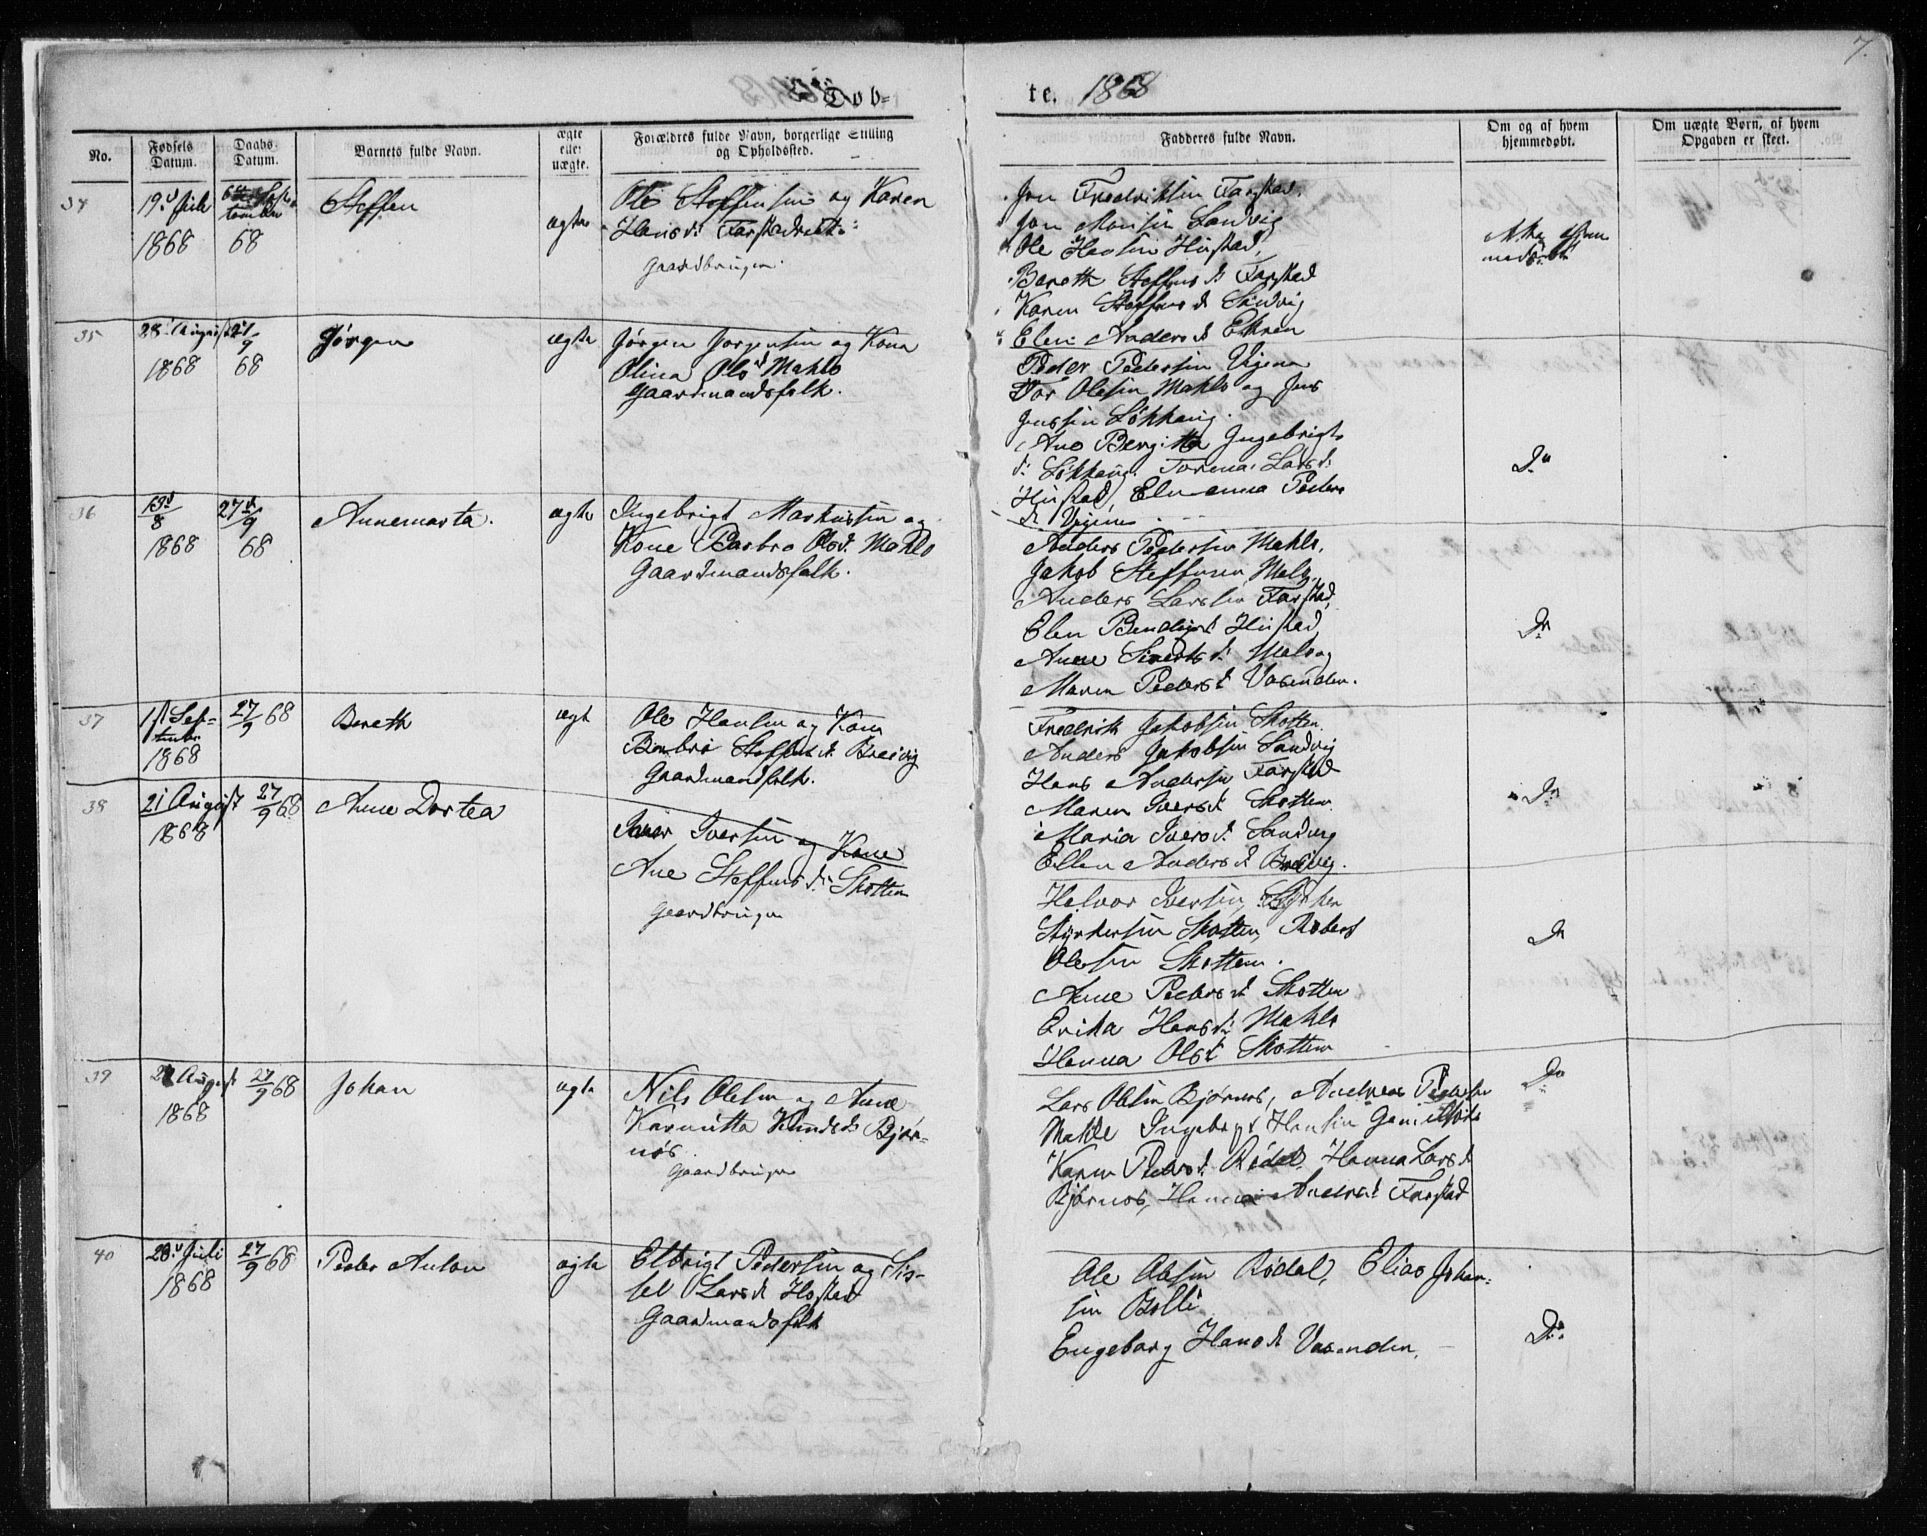 7.
Døb-
te. 1868
No.
Fødsels Datum.
Daabs Datum.
Barnets fulde Navn.
ægte eller uægte.
Forældres fulde Navn, borgerlige Stilling og Opholdssted.
Fadderes fulde Navn.
Om og af hvem hjemmedøbt.
Om uægte Børn, af hvem Opgaven er skeet.
34
19d Juli
1868
68
Steffen
ægte
Ole Steffensen og Karen
Hansd:
Gaardbruger
Jon Fredriksen Farstad,
Jon Monsen Sandvig
Ole Hansen Hustad,
Bereth Steffensd: Farstad
Karen Steffensd Sandvig
Elen Andersd
35
28d August
1868
21/9
68
Jørgen
ægte
Jørgen Jørgensen og Kona
Olina Olsd Mahle
Gaardmandsfolk.
Peder Pedersen Vigene
Tor Olesen Mahle og Jens
Jensen Løkhaug.
Ane Bergitta Ingebrigts
d: Løkhaug, Larsd:
Hustad, Elenanna Peders
d Vigene
Do
36
13d/8
1868
27d/9
68
Annemarta.
ægte
Ingebrigt Markussen og
Kone Barbro Olsd. Mahle
Gaardmandsfolk.
Anders Pedersen Mahle,
Jakob Steffensen
Anders Larsen Farstad,
Elen Hustad
Anne Sivertsd:
Maren Pedersd Vasenden.
Do
37
1st Sep-
tembr
1868
27/9 68
Bereth
ægt
Ole Hansen og Kona
Barbro Steffensd. Breivig
Gaardmandfolk.
Fredrik Jakobsen Skotten
Anders Jakobsen Sandvig
Hans Andersen Farstad
Maren Iversd Skotten
Maria Iversd. Sandvig
Ellen Andersd Breivig.
Do
38
21 August
1868
27/9 68
Anne Dortea
Iver Iversen og Kone
Ane Steffensd: Skotten
Gaardbruger
Halvor Iversen,
Styrkersen Skotten, Robert
Olesen Skotten.
Anne Pedersd Skotten
Erika Hansd: Mahle
Hanna Olsd Skotten
Do
39
August
1868
27/9 68
Johan
ægte
Nils Olsen og Anne
Knudsd. Bjør-
nøs.
Gaardbruger
Lars Olsen Bjørnøs, Andreas Pedersen
Mahle Ingebrigt Hansen
Karen Pedersd. Rødal, Hanna Larsd
Bjørnøs, Farstad
Do
40
20d Juli
1868
27/9 68
Peder Anton
ægte
Elbrigt Pedersen og Sis-
sel Larsd Hostad
Gaardmandsfolk
Ole Olsen Rødal, Elias Johan-
sen Bolli
Engeborg Hansd Vasenden.
Do